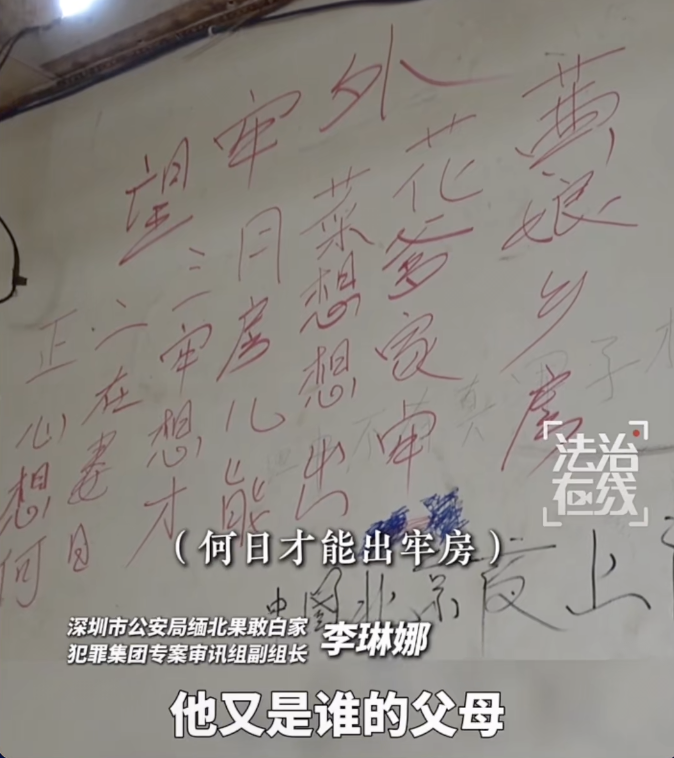 望牢外
正二三月菜花黄
心在牢房想爹娘
想妻想儿想家乡
何日才能出牢房
中国北京
法治
在线
（何日才能出牢房）
深圳市公安局缅北果敢白家
犯罪集团专案审讯组副组长
李琳娜
他又是谁的父母